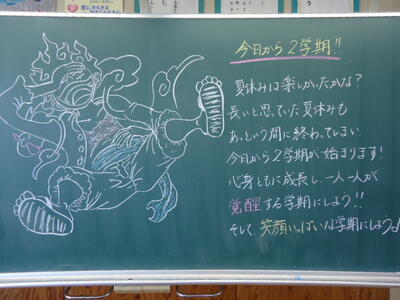 今日から2学期!!
夏休みは楽しかったかな?
長いと思っていた夏休みも
あっという間に終わってしまい
今日から2学期が始まります!
心身ともに成長し、一人一人が
覚醒する学期にしよう!!
そして、笑顔いっぱいな学期にしよう♪